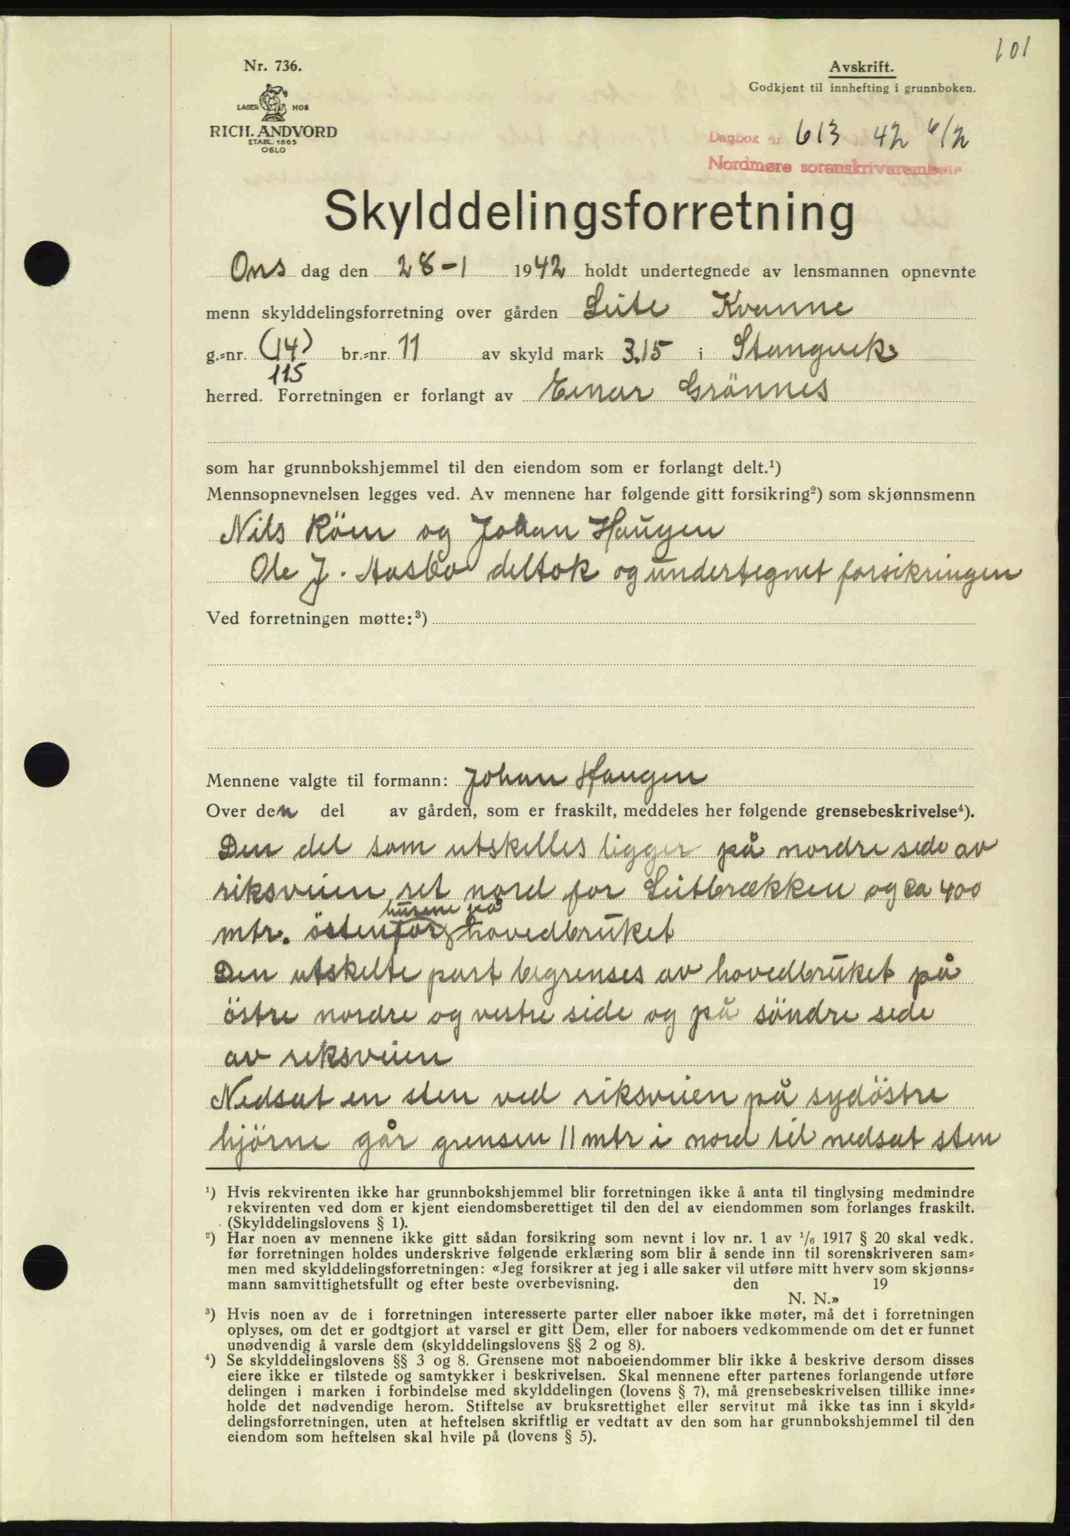 101
Nr. 736.
LAGER HOS
RICH. ANDVORD
ETABL. 1865
OSLO
Avskrift.
Godkjent til innhefting i grunnboken.
Dagbok nr 613 42 6/2
Nordmøre sorenskriverembete
Skylddelingsforretning
Ons dag den 28-1 1942 holdt undertegnede av lensmannen opnevnte
menn skylddelingsforretning over gården Leite Kvanne
g.=nr. (14) br.=nr. 11 av skyld mark 3.15 i Stangvik
115
herred. Forretningen er forlangt av Einar Grönnes
som har grunnbokshjemmel til den eiendom som er forlangt delt.¹)
Mennsopnevnelsen legges ved. Av mennene har følgende gitt forsikring²) som skjønnsmenn
Nils Röen og Johan Haugen
Ole J. Aasbø deltok og undertegnet forsikringen
Ved forretningen møtte:³)
Mennene valgte til formann: Johan Haugen
Over den del av gården, som er fraskilt, meddeles her følgende grensebeskrivelse⁴).
Den del som utskilles ligger på nordre side av
riksveien ret nord for Leitbrækken og ca 400
husene på
mtr. östenfor hovedbruket
Den utskelte part begrenses av hovedbruket på
östre nordre og vestre side og på söndre side
av riksveien
Nedsat en sten ved riksveien på sydöstre
hjörne går grensen 11 mtr i nord til nedsat sten
¹) Hvis rekvirenten ikke har grunnbokshjemmel blir forretningen ikke å anta til tinglysing medmindre
rekvirenten ved dom er kjent eiendomsberettiget til den del av eiendommen som forlanges fraskilt.
(Skylddelingslovens § 1).
²) Har noen av mennene ikke gitt sådan forsikring som nevnt i lov nr. 1 av 1/6 1917 § 20 skal vedk.
før forretningen holdes underskrive følgende erklæring som blir å sende inn til sorenskriveren sam=
men med skylddelingsforretningen: «Jeg forsikrer at jeg i alle saker vil utføre mitt hverv som skjønns=
mann samvittighetsfullt og efter beste overbevisning. den 19
N. N.»
³) Hvis noen av de i forretningen interesserte parter eller naboer ikke møter, må det i forretningen
oplyses, om det er godtgjort at varsel er gitt Dem, eller for naboers vedkommende om det er funnet
unødvendig å varsle dem (skylddelingslovens §§ 2 og 8).
⁴) Se skylddelingslovens §§ 3 og 8. Grensene mot naboeiendommer blir ikke å beskrive dersom disses
eiere ikke er tilstede og samtykker i beskrivelsen. Skal mennene efter partenes forlangende utføre
delingen i marken i forbindelse med skylddelingen (lovens § 7), må grensebeskrivelsen tillike inne=
holde det nødvendige herom. Stiftelse av bruksrettighet eller servitut må ikke tas inn i skyld=
delingsforretningen, uten at heftelsen skriftlig er vedtatt av den som har grunnbokshjemmel til den
eiendom som heftelsen skal hvile på (lovens § 5).